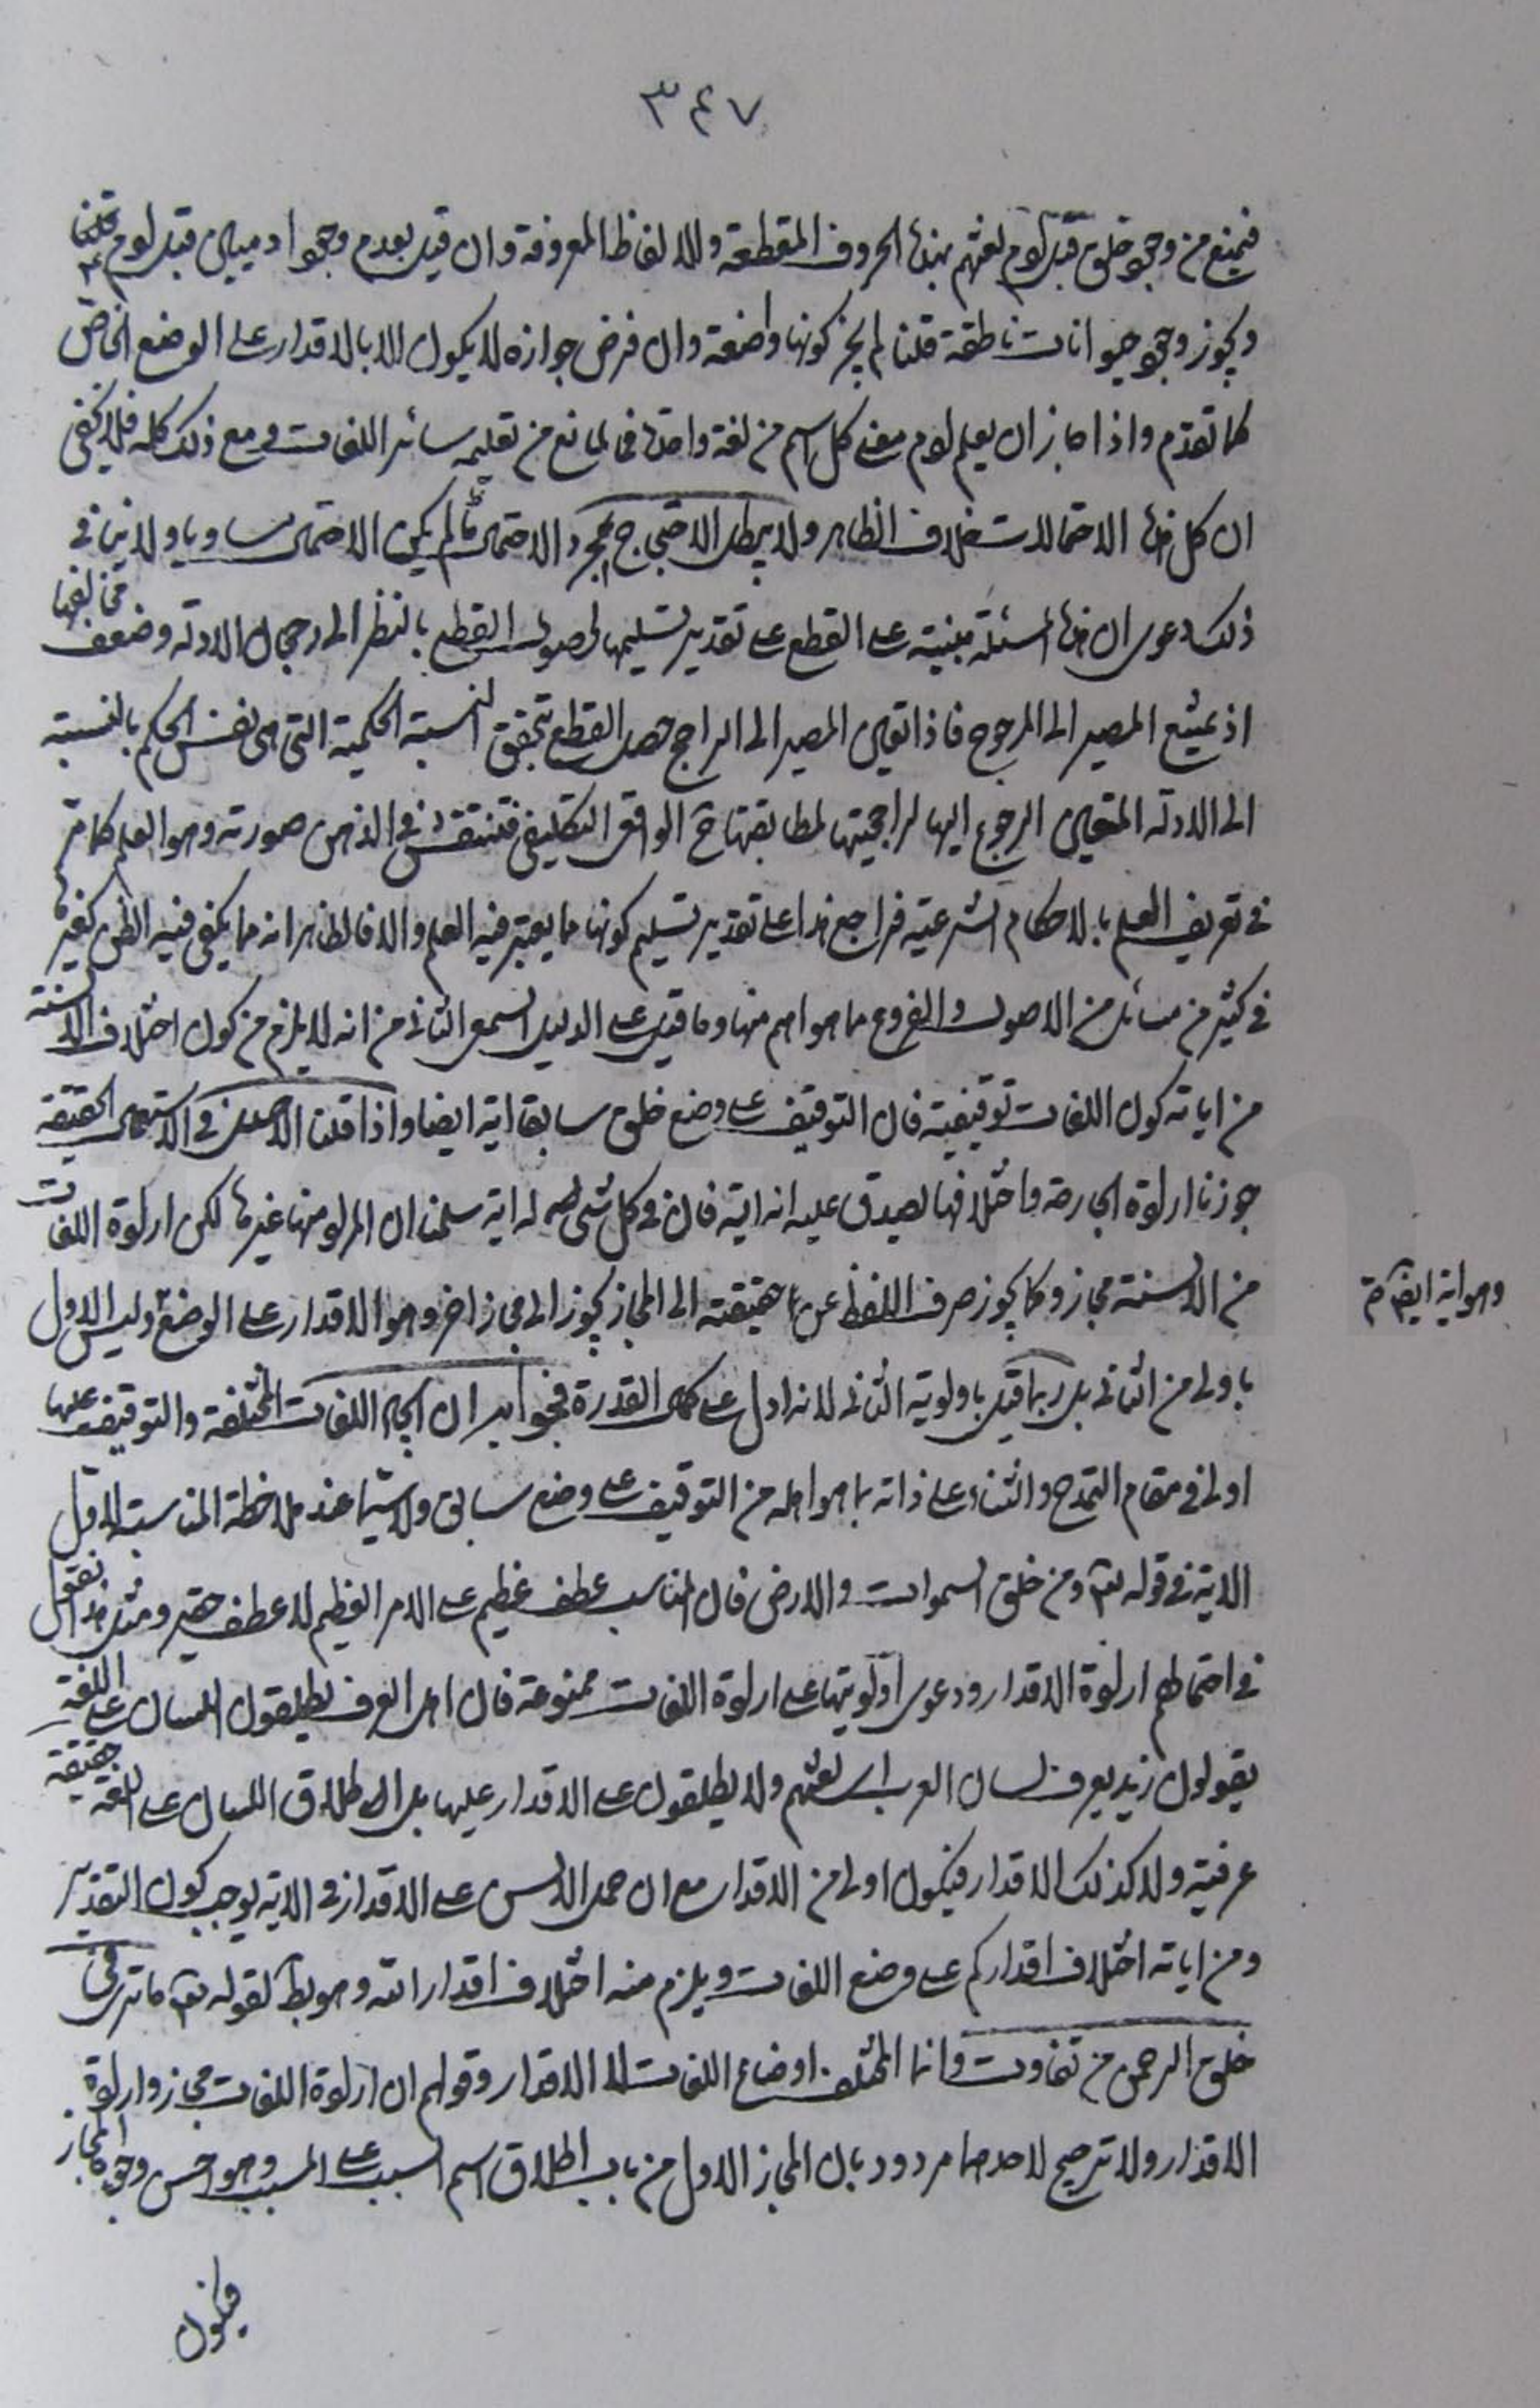 ٣٤٧
فيمنع من وجود خلق قبل آدم لغتهم بهذه الحروف المقطعة والالفاظ المعروفة وان قيل بعدم وجود ادميين قبل آدم قلنا
ويجوز وجود حيوانات ناطقة قلنا لم يجز كونها واضعة وان فرض جوازه لا يكون الا بالاقدار على الوضع الخاص
كما تقدم واذا جاز ان يعلم آدم معنى كل اسم من لغة واحدة فما المانع من تعليمه سائر اللغات ومع ذلك كله فلا يخفى
ان كل هذه الاحتمالات خلاف الظاهر ولا يبطل الاحتجاج بمجرد الاحتمال ما لم يكن الاحتمال مساويا ولا ينافي
ذلك دعوى ان هذه المسئلة مبنية على القطع على تقدير تسليمها لحصول القطع بالنظر الى رجحان الادلة وضعف مخالفها
اذ يمتنع المصير الى المرجوح فاذا تعين المصير الى الراجح حصل القطع بتحقق النسبة الحكمية التي هي نفس الحكم بالنسبة
الى الادلة المتعين الرجوع اليها لراجحيتها لمطابقتها ح الواقعى التكليفى فتنتقش في الذهن صورته وهو العلم كما مر
في تعريف العلم بالاحكام الشرعية فراجع هذا على تقدير تسليم كونها مما يعتبر فيه العلم والا فالظاهر انه مما يكفى فيه الظن كغيرها
في كثير من مسائل من الاصول والفروع مما هو اهم منها وما قيل على الدليل السمعى الثاني من انه لا يلزم من كون اختلاف الالسنة
من اياته كون اللغات توقيفية فان التوقيف على وضع خلق سابق اية ايضا واذا قلنا الاصل في الاستعمال الحقيقة
جوزنا ارادة الجارحة واختلافها يصدق عليه انه اية فان في كل شئ له اية سلمنا ان المراد منها غيرها لكن ارادة اللغات
من الالسنة مجاز وكما يجوز صرف اللفظ عن حقيقته الى المجاز يجوز الى مجاز اخر وهو الاقدار على الوضع وليس الاول
وهو اية ايضا صح
باولى من الثانى بل ربما قيل باولوية الثانى لانه ادل على كمال القدرة فجوابه ان ايجاد اللغات المختلفة والتوقيف عليها
اولى في مقام التمدح والثناء على ذاته بما هو اهله من التوقيف على وضع سابق ولا سيما عند ملاحظة المناسبة لما قبل
الاية في قوله تعالى ومن خلق السموات والارض فان المناسب عطف عظيم على الامر العظيم لا عطف حقير ومثل هذا نقول
في احتمالهم ارادة الاقدار ودعوى اولويتها على ارادة اللغات ممنوعة فان اهل العرف يطلقون اللسان على اللغة
يقولون زيد يعرف لسان العرب اى لغتهم ولا يطلقون على الاقدار عليها بل اطلاق اللسان على اللغة حقيقة
عرفية ولا كذلك الاقدار فيكون اولى من الاقدار مع ان حمل الالسن على الاقدار في الاية يوجب كون التقدير
ومن اياته اختلاف اقداركم على وضع اللغات ويلزم منه اختلاف اقدار الله وهو بط لقوله تعالى ما ترى في
خلق الرحمن من تفاوت وانما المختلف اوضاع اللغات لا الاقدار وقولهم ان ارادة اللغات مجاز وارادة
الاقدار ولا ترجيح لاحدهما مردود بان المجاز الاول من باب اطلاق اسم السبب على المسبب وهو احسن وجوه المجاز
فيكون